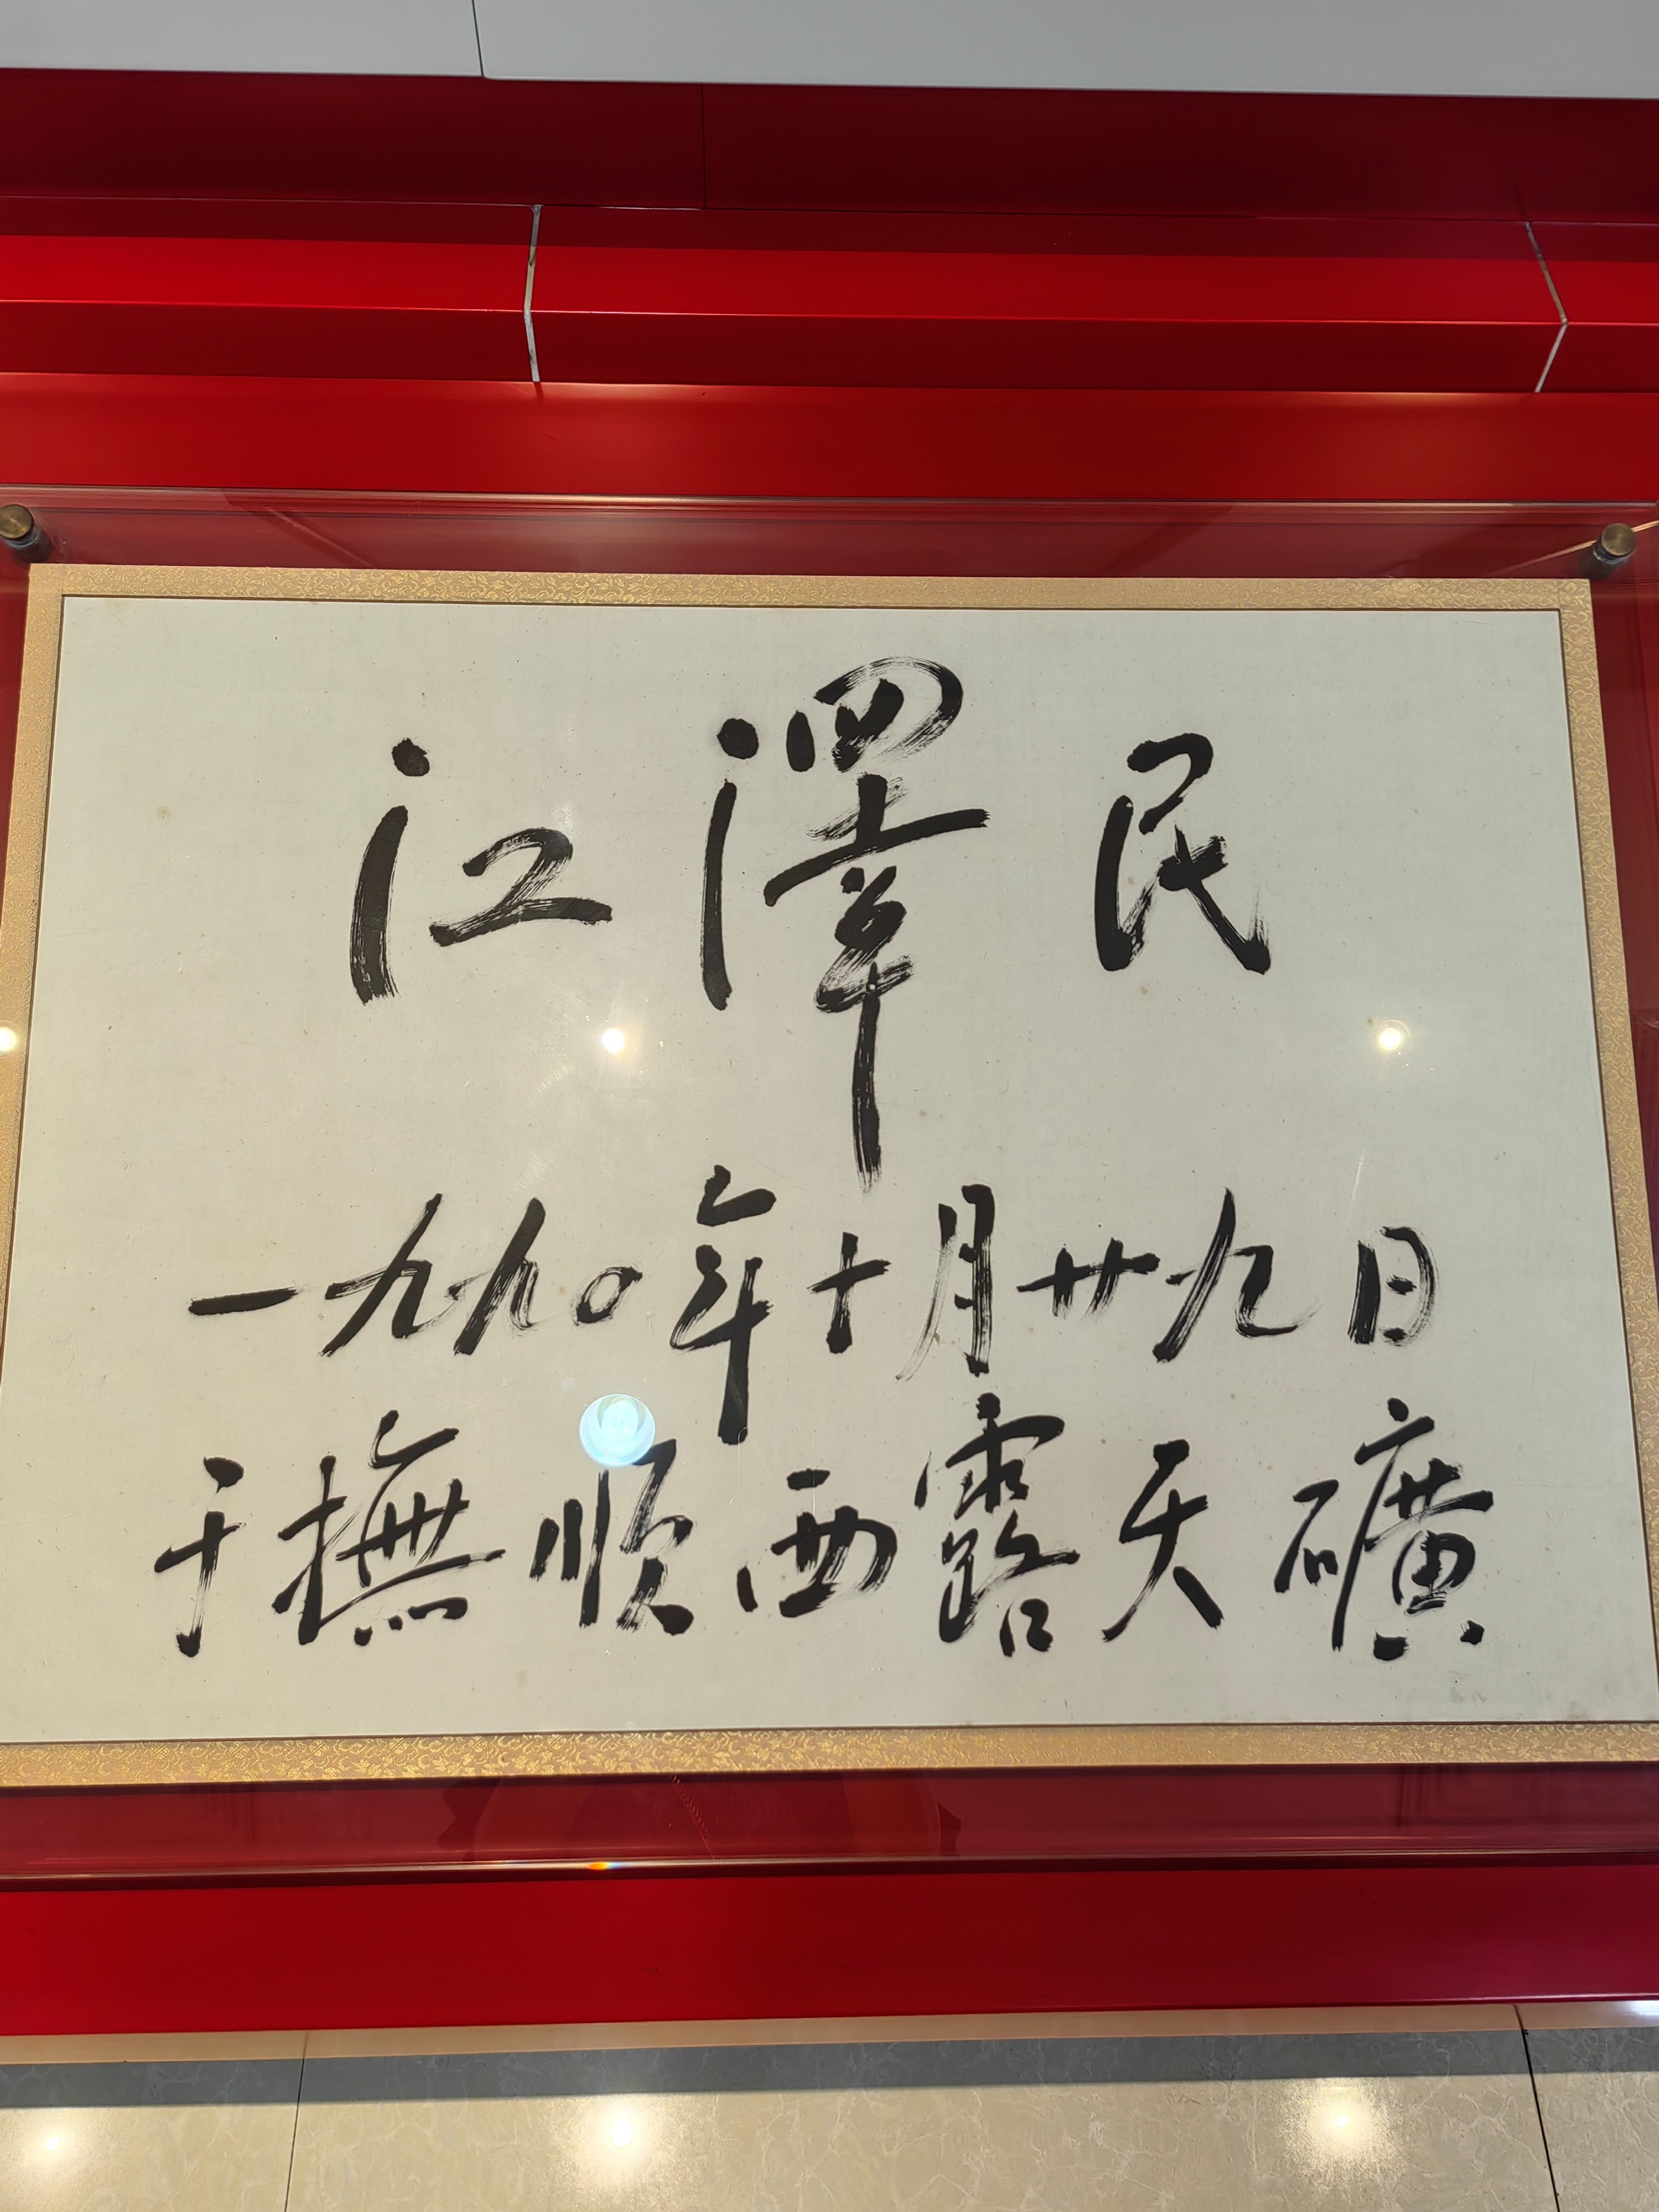 江澤民
一九九〇年十月廿九日
于撫順西露天礦